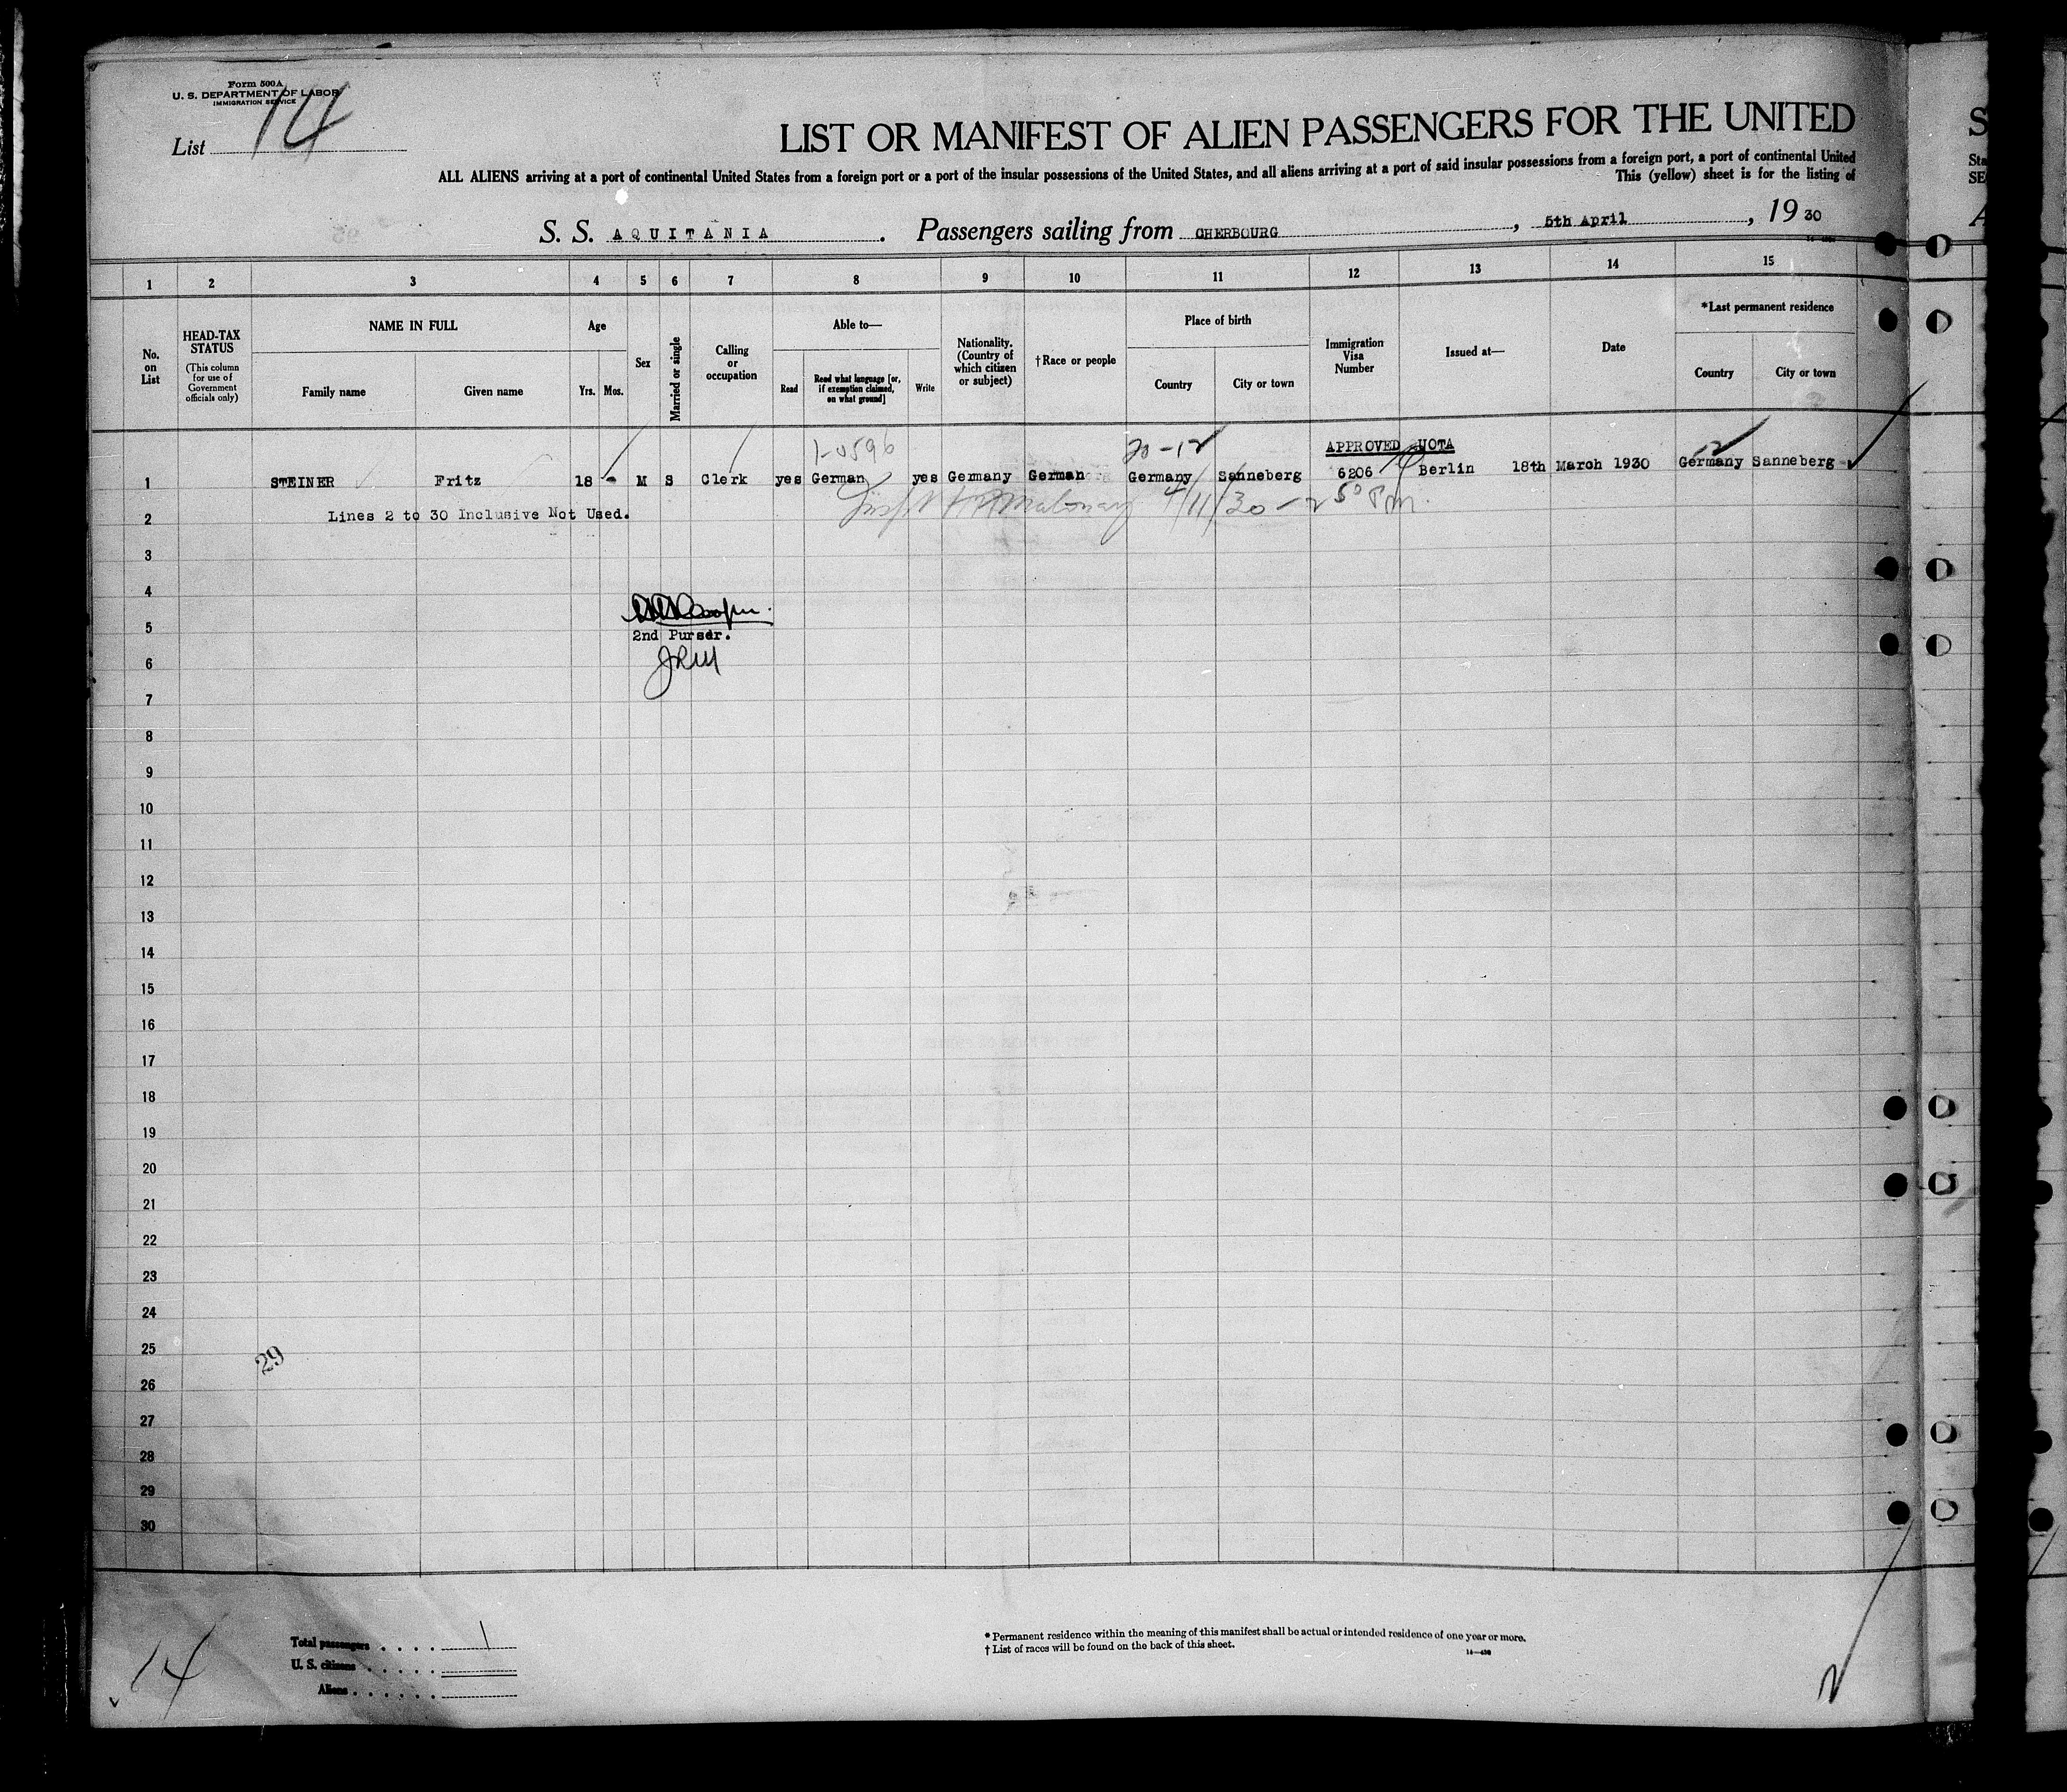 Form 500A
U. S. DEPARTMENT OF LABOR
IMMIGRATION SERVICE
List 14
LIST OR MANIFEST OF ALIEN PASSENGERS FOR THE UNITED
S
ALL ALIENS arriving at a port of continental United States from a foreign port or a port of the insular possessions of the United States, and all aliens arriving at a port of said insular possessions from a foreign port, a port of continental United
Sta
This (yellow) sheet is for the listing of
SE
S. S. AQUITANIA . Passengers sailing from CHERBOURG , 5th April , 19 30
A
1 2 3 4 5 6 7 8 9 10 11 12 13 14 15
No. on List
HEAD-TAX STATUS
(This column for use of Government officials only)
NAME IN FULL
Family name Given name
Age
Yrs. Mos.
Sex
Married or single
Calling or occupation
Able to—
Read
Read what language [or, if exemption claimed, on what ground]
Write
Nationality. (Country of which citizen or subject)
†Race or people
Place of birth
Country City or town
Immigration Visa Number
Issued at—
Date
*Last permanent residence
Country City or town
20-12 APPROVED UOTA
1 STEINER Fritz 18 - M S Clerk yes German yes Germany German Germany Sanneberg 6206 Berlin 18th March 1930 Germany Sanneberg
4/11/30 - 2 50 Pm.
2 Lines 2 to 30 Inclusive Not Used.
3
4
5
2nd Purser.
6
JRM
7
8
9
10
11
12
13
14
15
16
17
18
19
20
21
22
23
24
25
29
26
27
28
29
30
14
Total passengers . . . . 1
U. S. citizens . . . . .
Aliens . . . . . .
* Permanent residence within the meaning of this manifest shall be actual or intended residence of one year or more.
† List of races will be found on the back of this sheet.